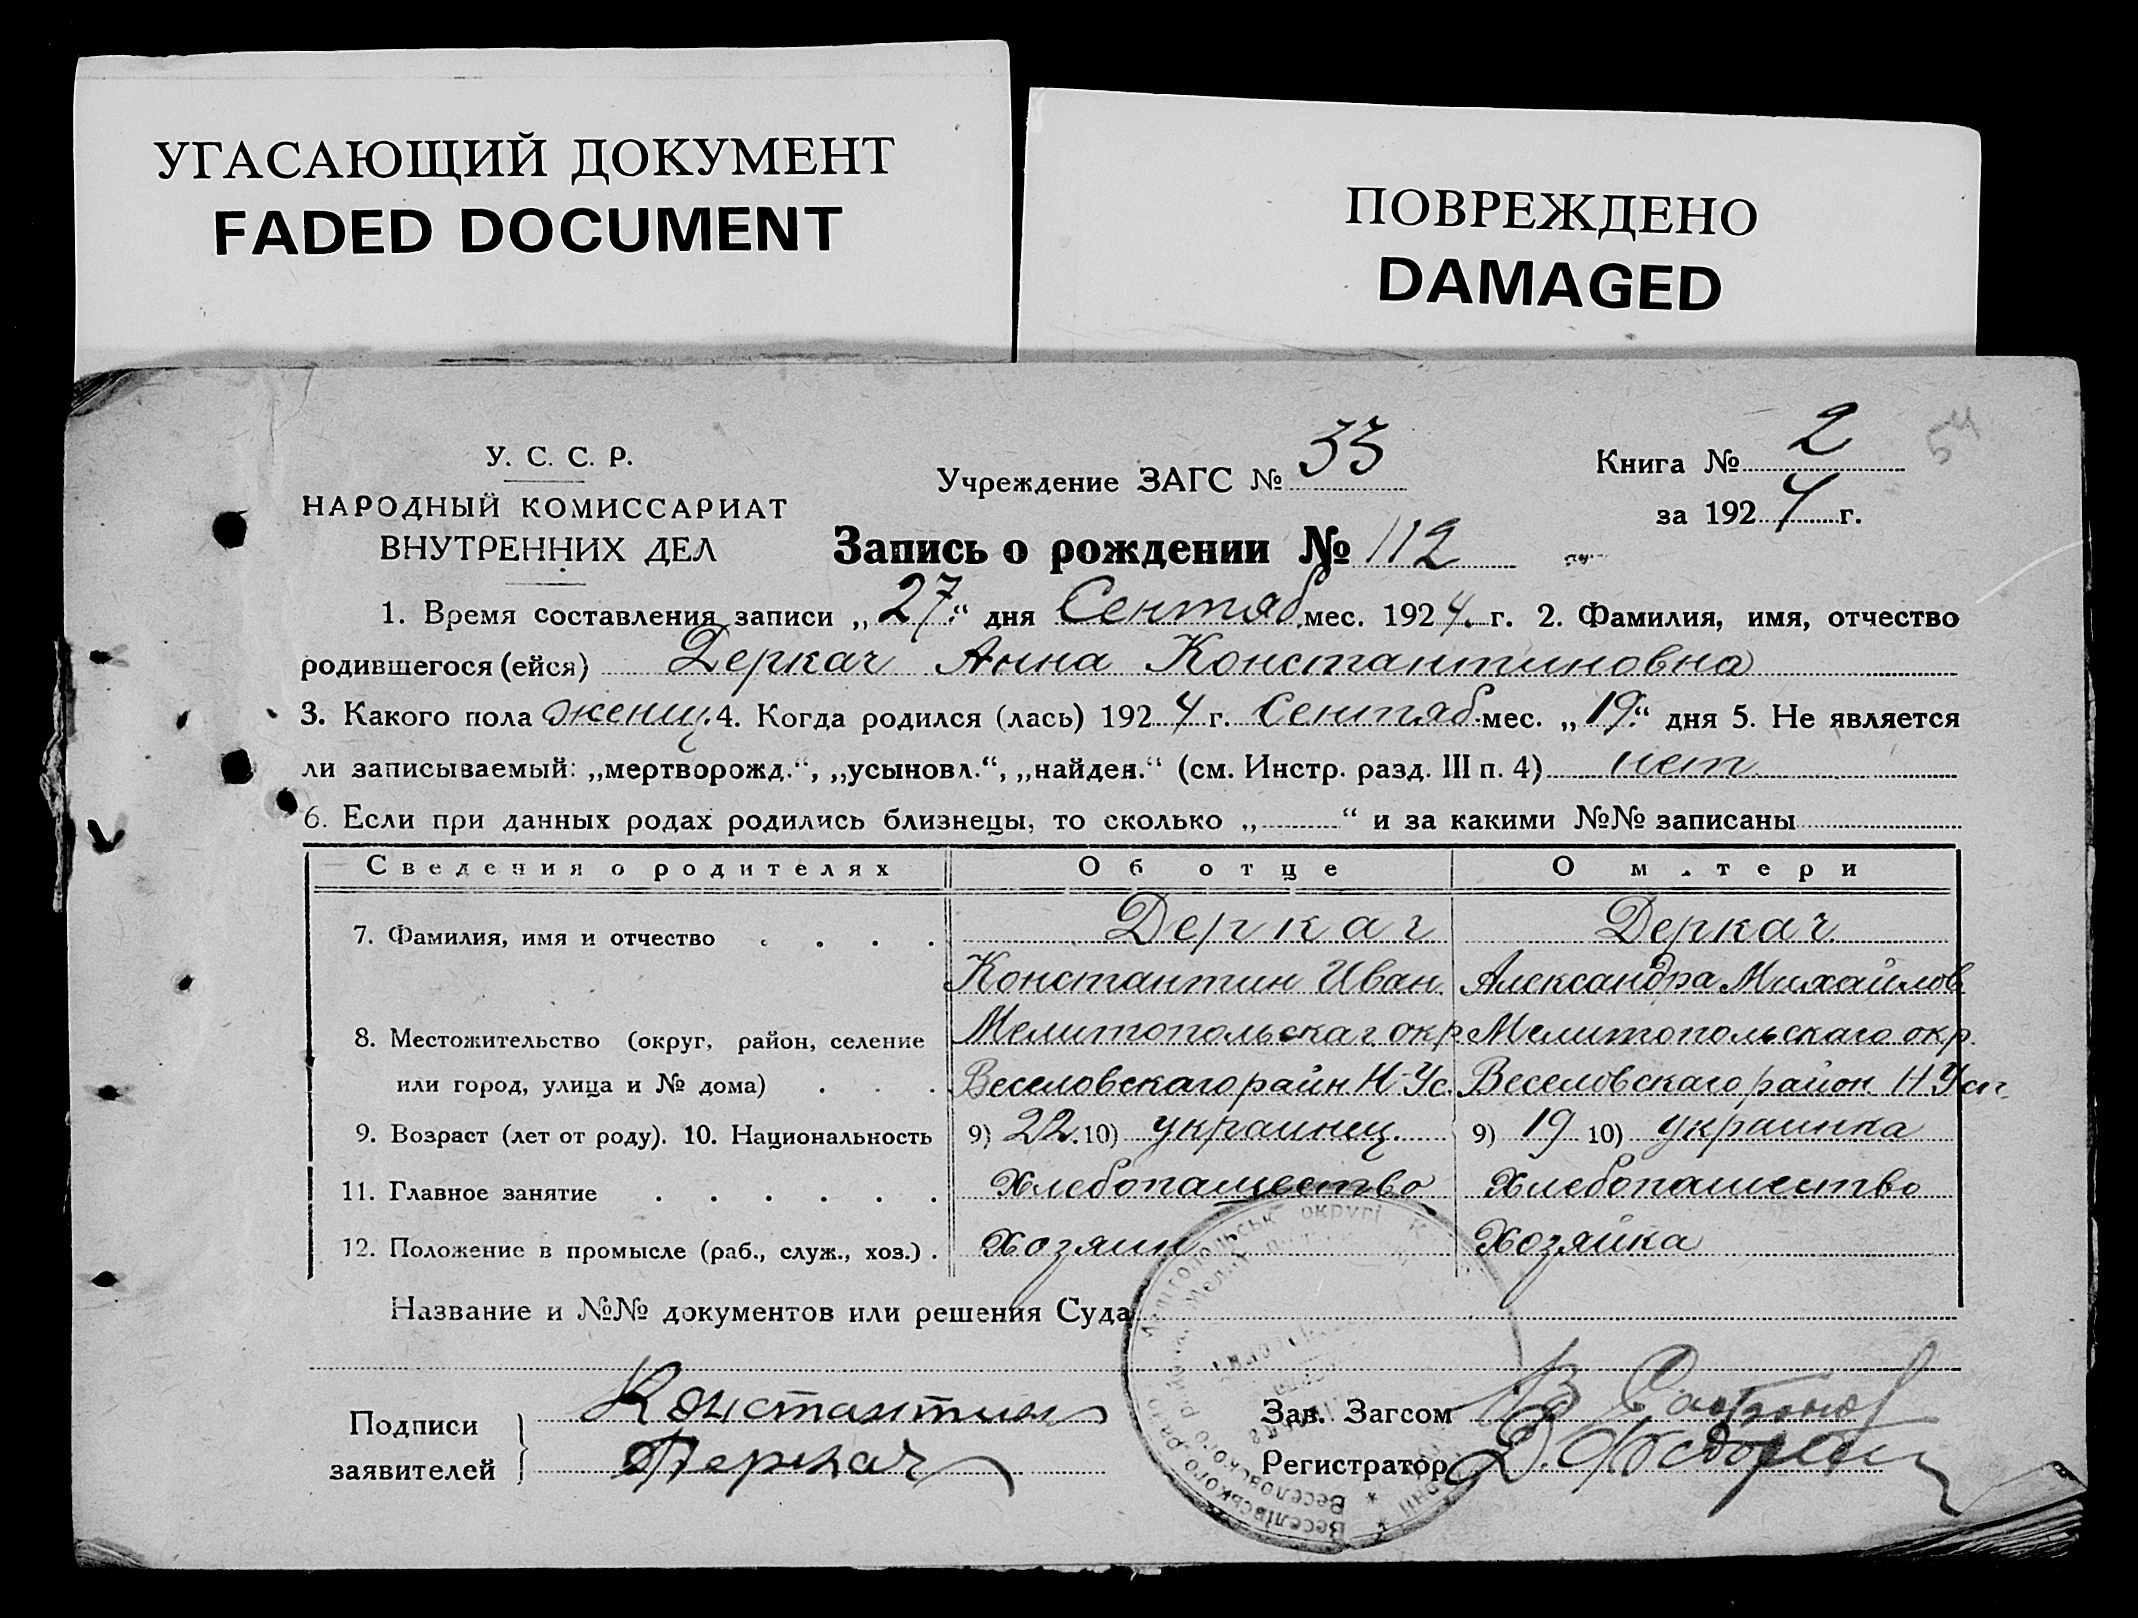 УГАСАЮЩИЙ ДОКУМЕНТ
FADED DOCUMENT
ПОВРЕЖДЕНО
DAMAGED
54
У. С. С. Р.
НАРОДНЫЙ КОМИССАРИАТ
ВНУТРЕННИХ ДЕЛ
Учреждение ЗАГС № 33
Книга № 2
за 1924 г.
Запись о рождении № 112
1. Время составления записи „27“ дня Сентяб. мес. 1924 г. 2. Фамилия, имя, отчество
родившегося (ейся) Деркач Анна Константиновна
3. Какого пола женщ. 4. Когда родился (лась) 1924 г. Сентяб. мес. „19“ дня 5. Не является
ли записываемый: „мертворожд.“, „усыновл.“, „найден.“ (см. Инстр. разд. III п. 4) нет
6. Если при данных родах родились близнецы, то сколько „ “ и за какими №№ записаны
Сведения о родителях Об отце О м.тери
7. Фамилия, имя и отчество . . . . Деркач Деркач
Константин Иван. Александра Михайлов
8. Местожительство (округ, район, селение Мелитопольскаг окр. Мелитопольскаго окр.
или город, улица и № дома) . . . Веселовскаго райн. Н-Ус. Веселовскаго район. Н Усп.
9. Возраст (лет от роду). 10. Национальность 9) 22. 10) украинец. 9) 19 10) украинка
11. Главное занятие . . . . . . Хлебопашество Хлебопашество
12. Положение в промысле (раб., служ., хоз.) . Хозяин Хозяйка
Название и №№ документов или решения Суда
Подписи
заявителей
Константин
Деркач
Зав. Загсом В
Регистратор Д.
Веселівського
Веселовского
округі